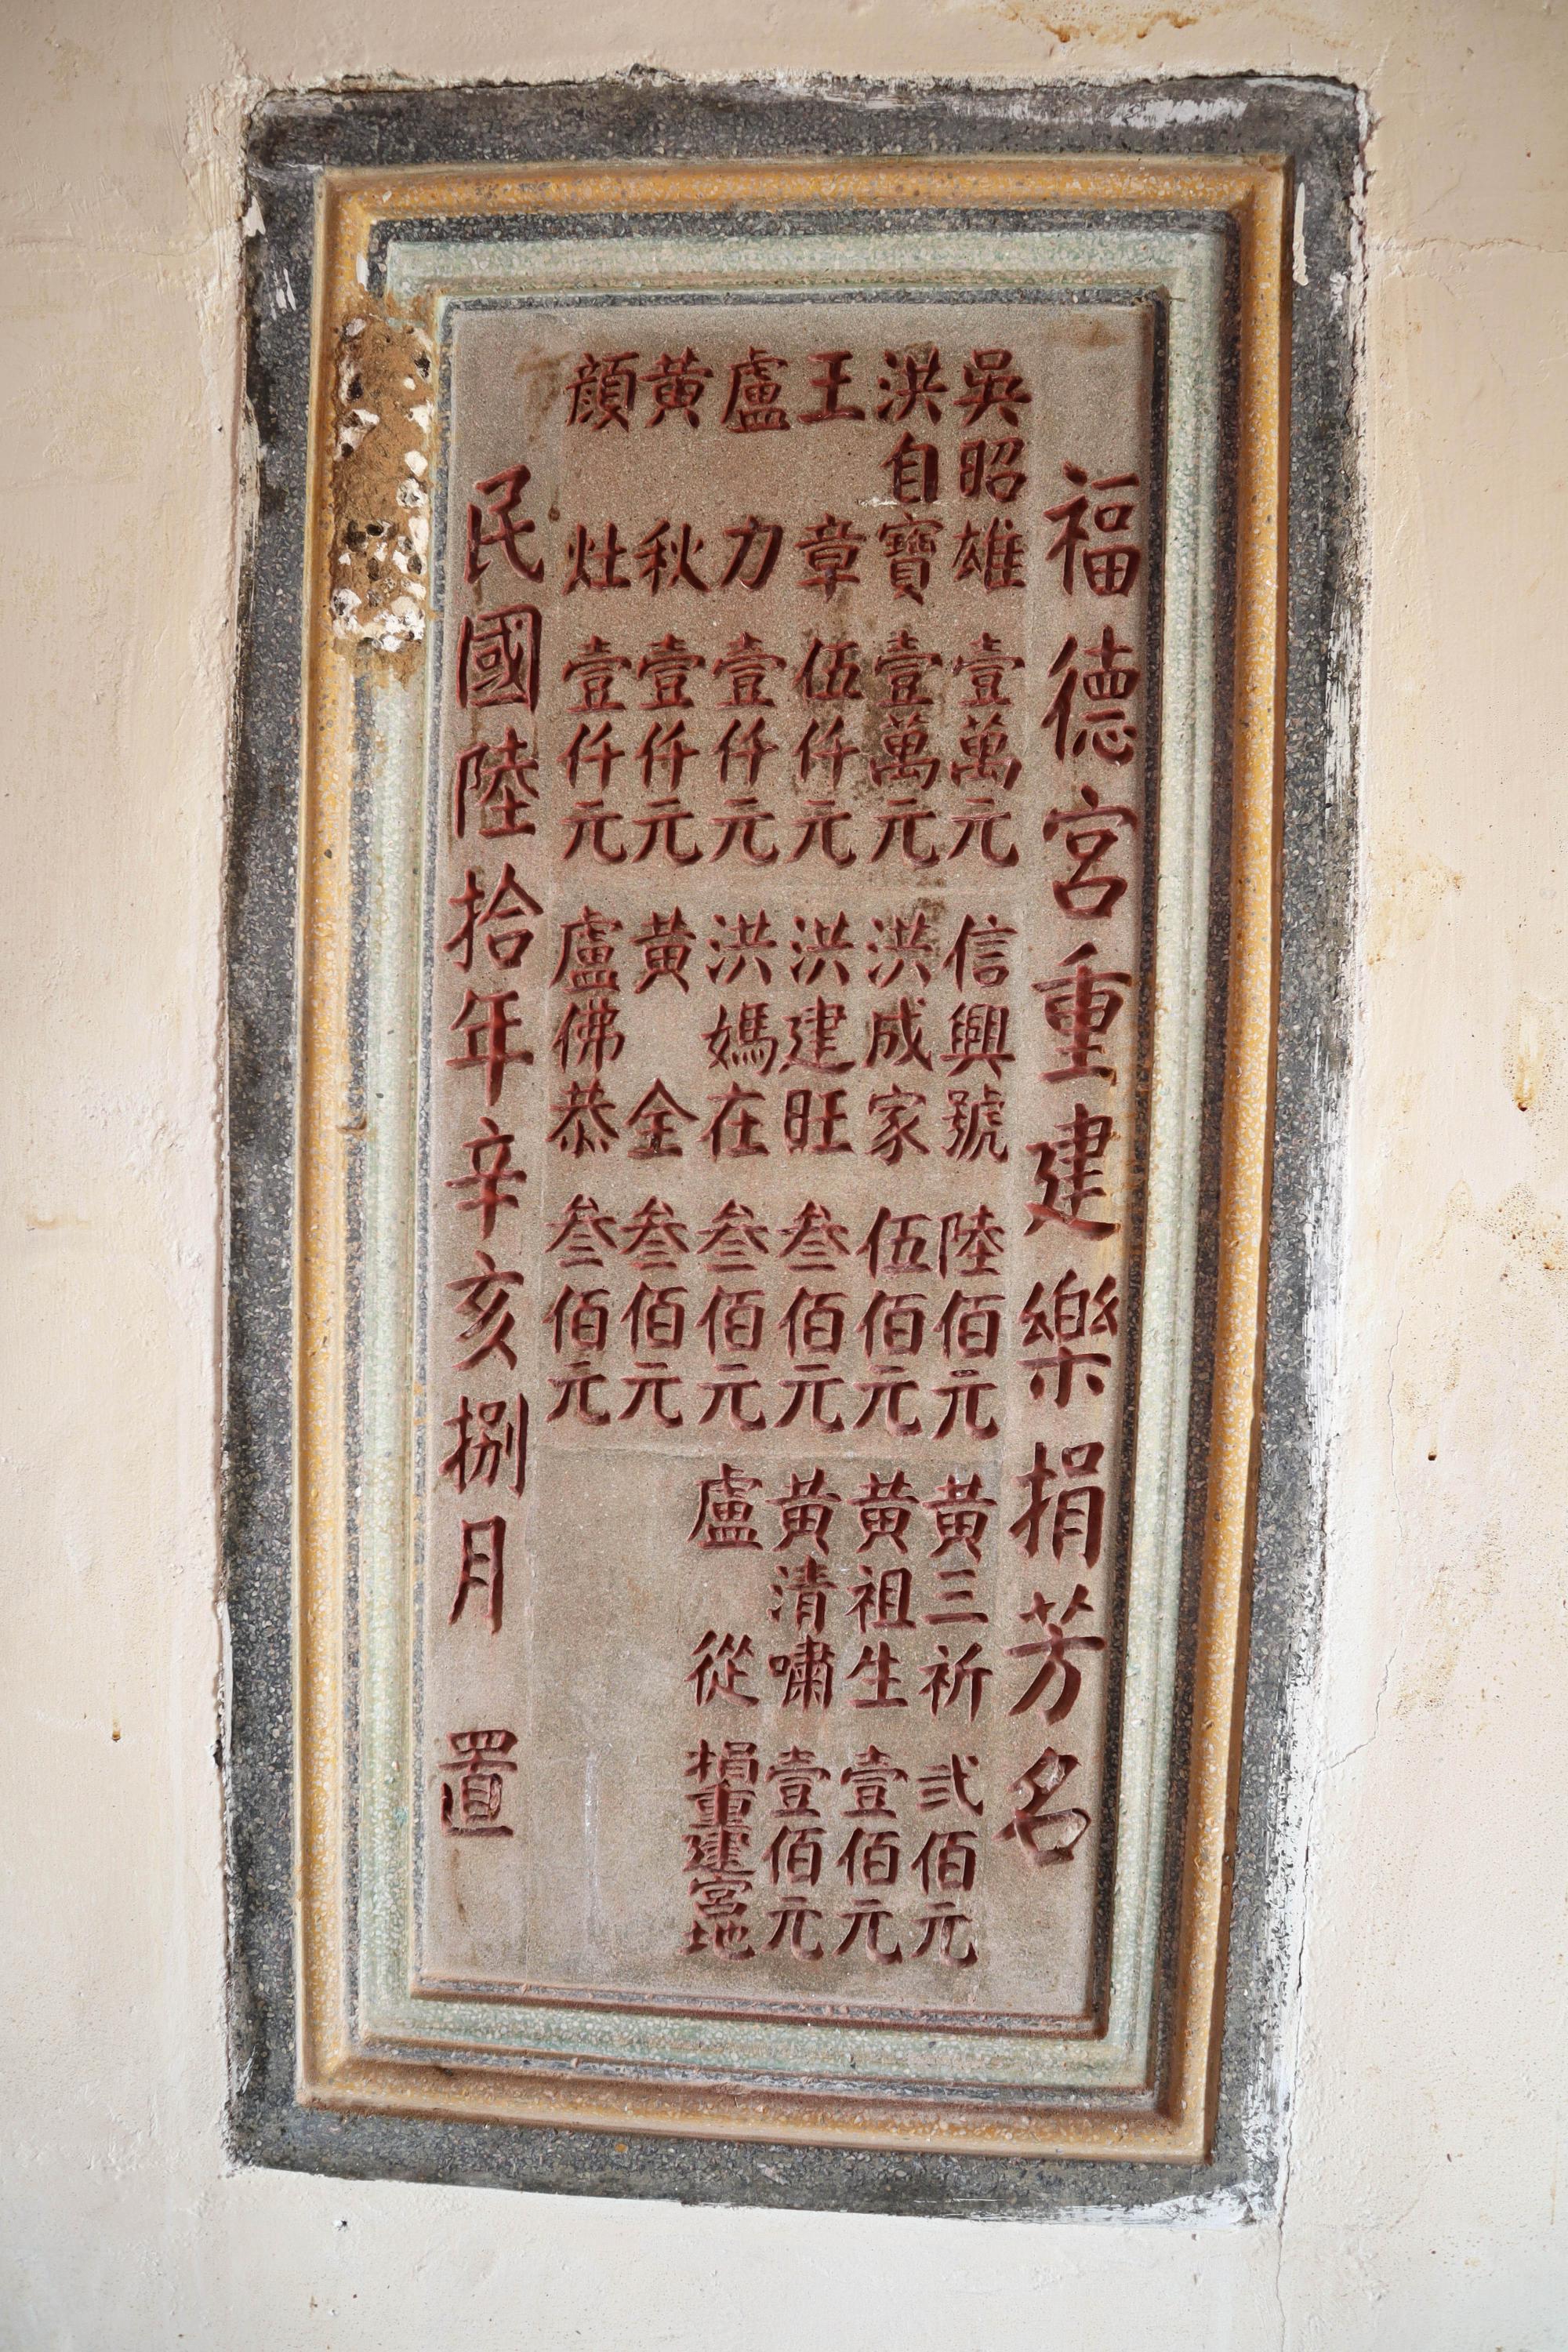 福德宮重建樂捐芳名
吳昭雄 壹萬元
洪自寶 壹萬元
王章 伍仟元
盧力 壹仟元
黃秋 壹仟元
顏灶 壹仟元
信興號 陸佰元
洪成家 伍佰元
洪建旺 叁佰元
洪媽在 叁佰元
黃全 叁佰元
盧佛恭 叁佰元
黃三祈 弍佰元
黃祖生 壹佰元
黃清嘯 壹佰元
盧從 捐重建宮地
民國陸拾年辛亥捌月 置